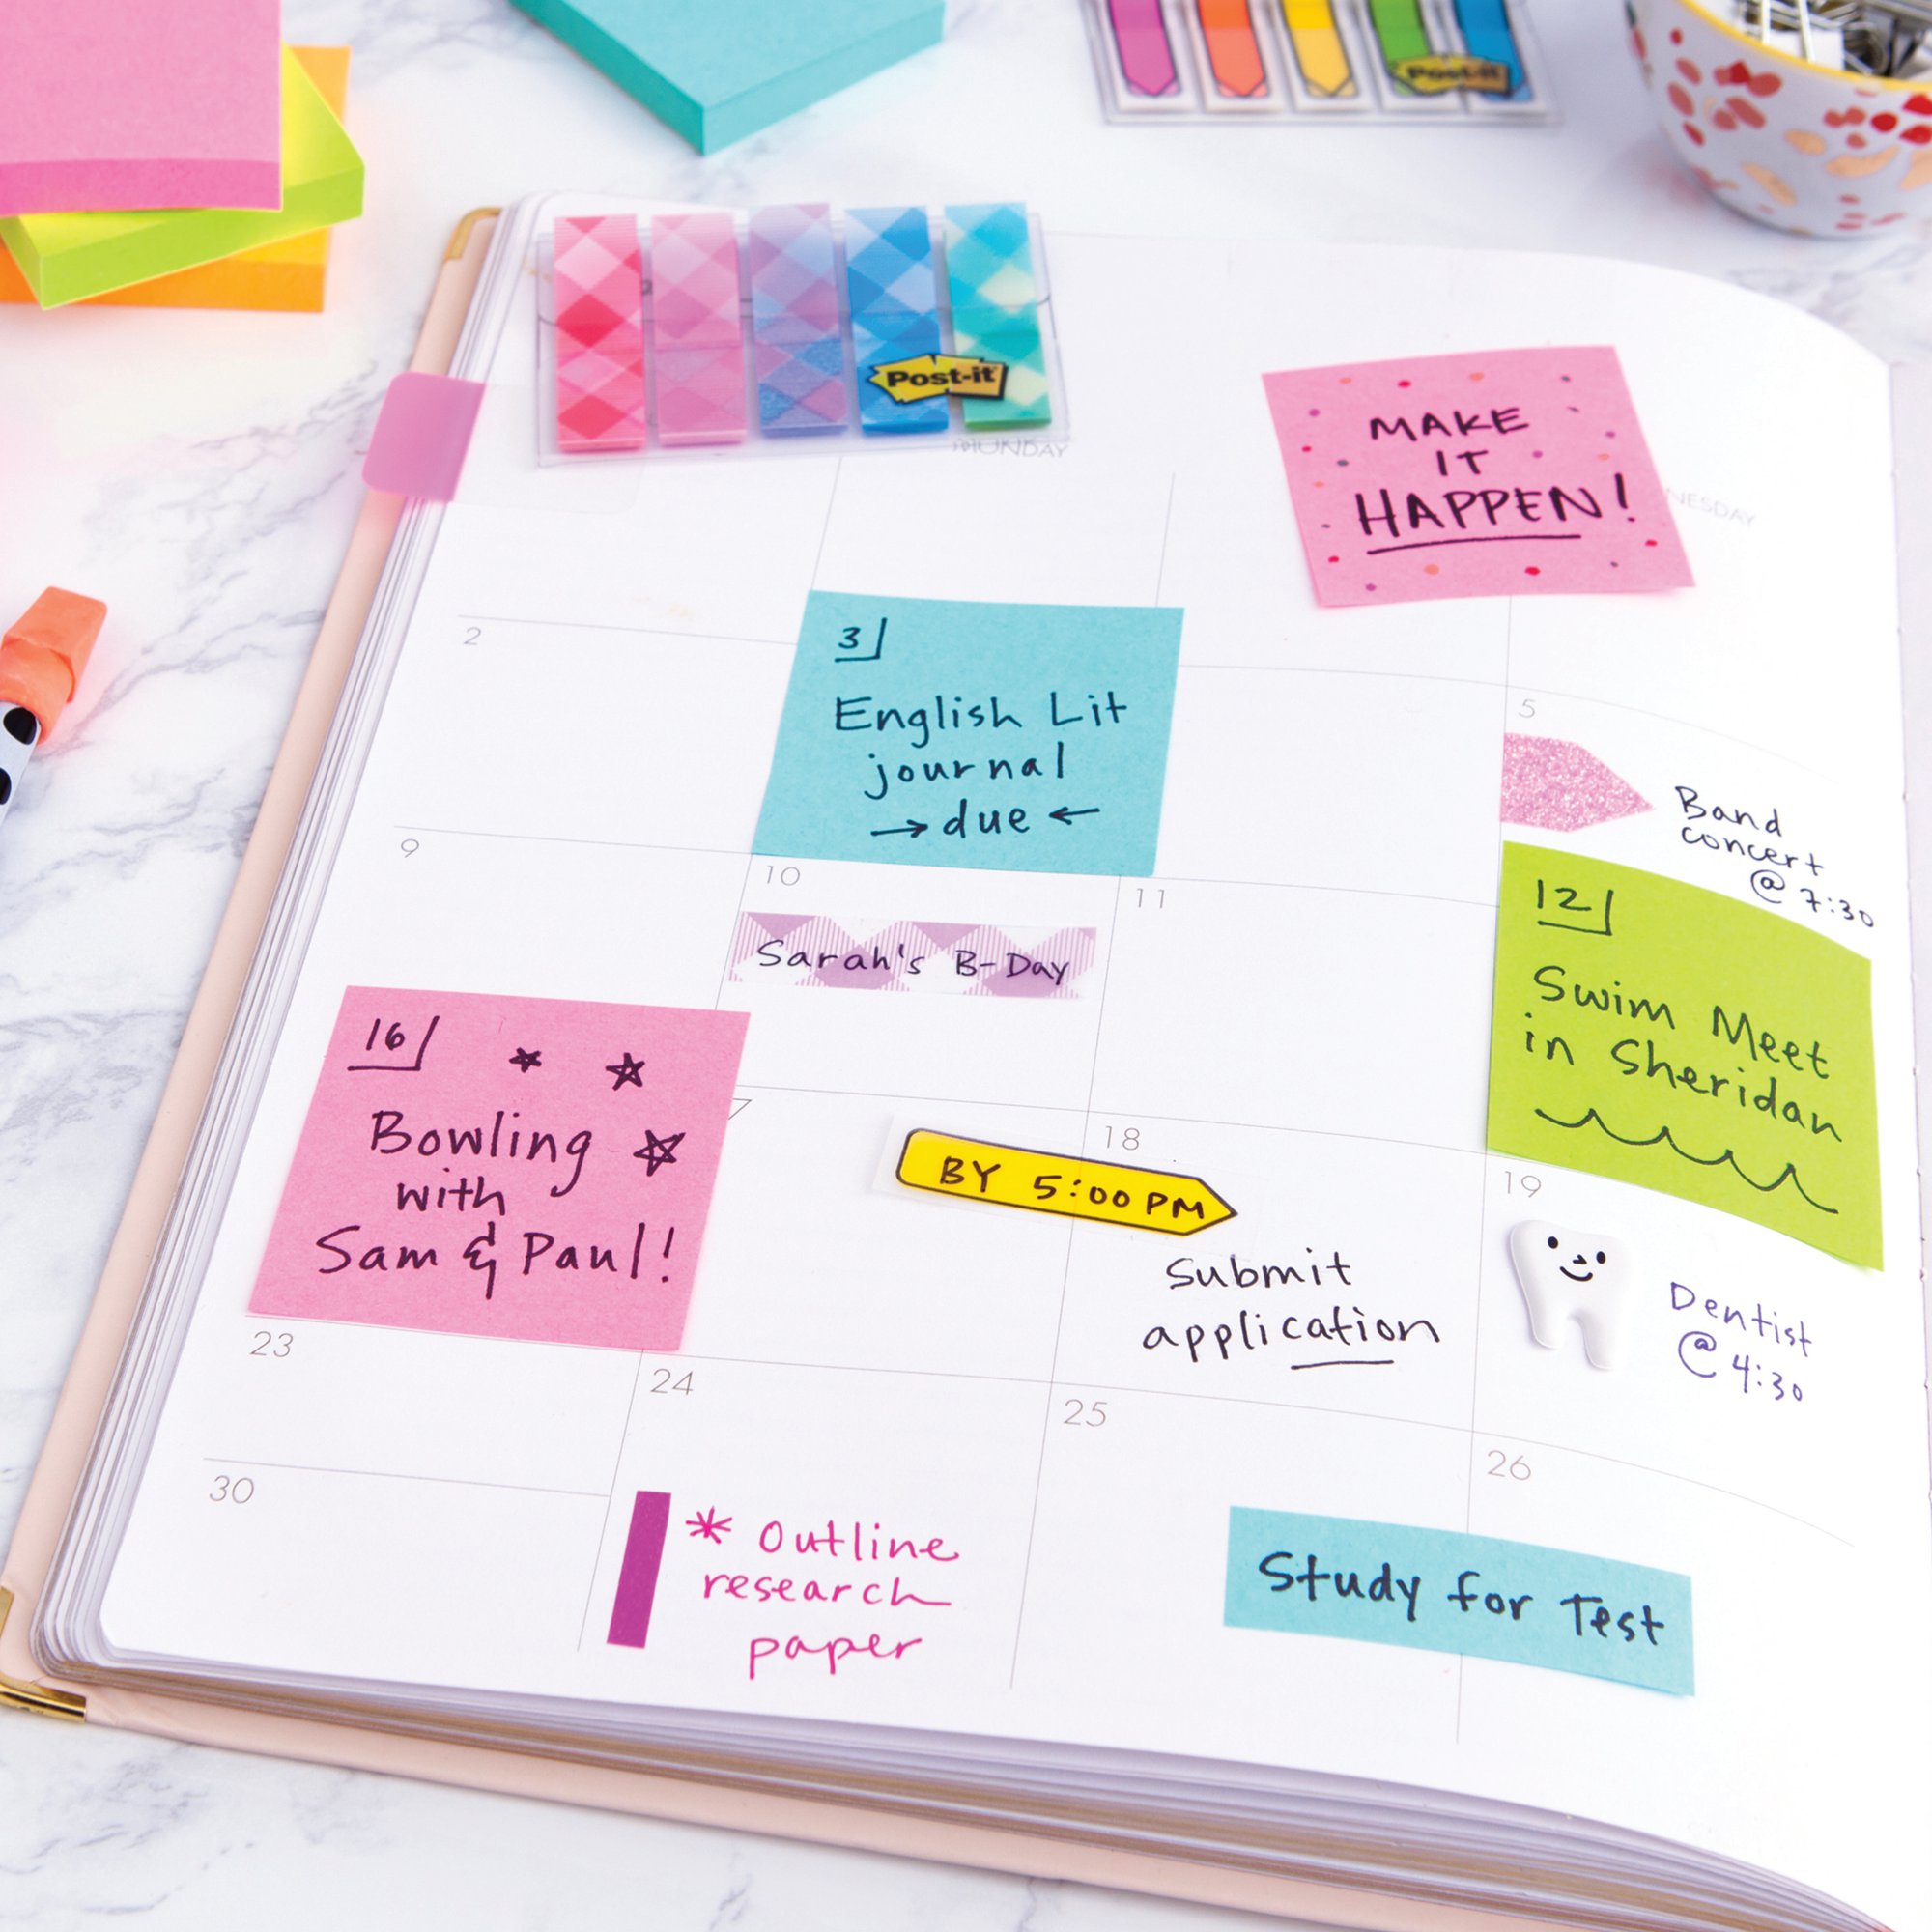 Post-it
Post-it
MONDAY
MAKE
IT
HAPPEN!
NESDAY
2
3
English Lit
journal
→ due ←
5
Band
concert
@ 7:30
9
10
Sarah's B-Day
11
12
Swim Meet
in Sheridan
16
Bowling
with
Sam & Paul!
7
BY 5:00 PM
18
Submit
application
19
Dentist
@ 4:30
23
24
* Outline
research
paper
25
26
Study for Test
30